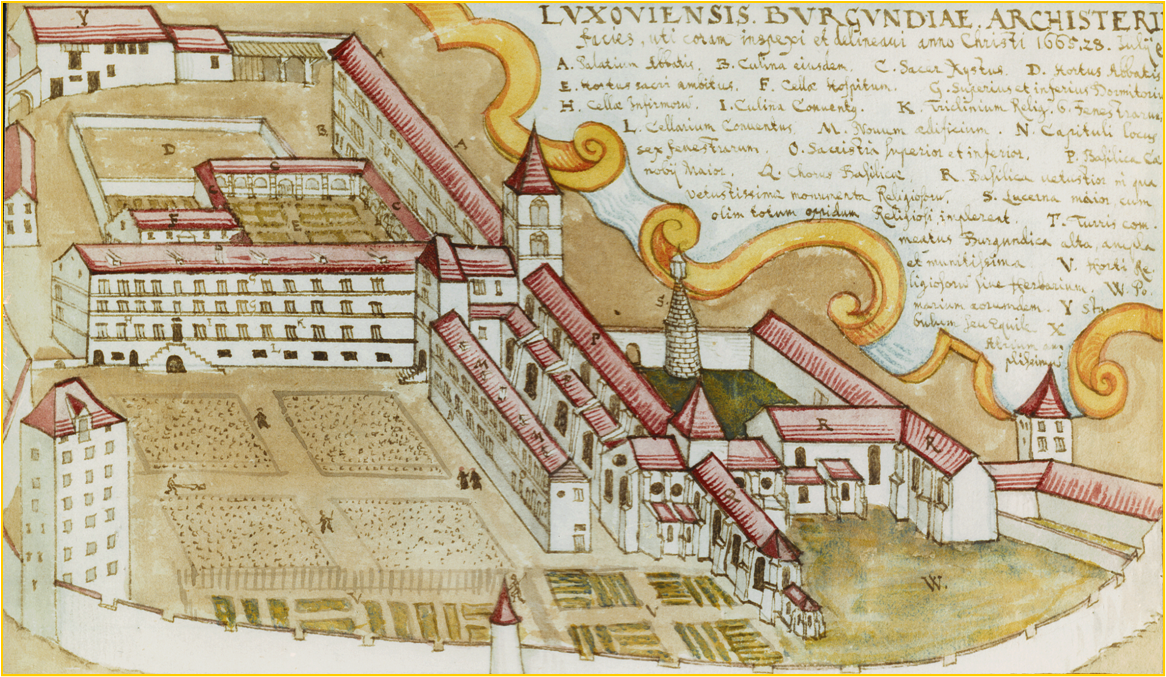 LVXOVIENSIS. BVRGVNDIAE. ARCHISTERII
facies, uti coram inspexi et delineavi anno Christi 1665. 28. Iulij
A. Palatium Abbatis. B. Culina eiusdem. C. Sacer Xystus. D. Hortus Abbatis
E. Hortus sacri ambitus. F. Cellæ Hospitum. G. Superius et inferius Dormitoriū
H. Cellæ Infirmorū. I. Culina Conventq. K. Triclinium Relig. 6. Fenestrarum,
L. Cellarium Conventus. M. Novum ædificium. N. Capituli locus
sex fenestrarum. O. Sacristia superior et inferior. P. Basilica Cœ
nobij Maior. Q. Chorus Basilicæ R. Basilica vetustior in qua
vetustissima monumenta Religiosorū. S. Lucerna maior, cum
olim totum oppidum Religiosi implerent. T. Turris com
meatus Burgundica alta, ampla
et munitissima V. Horti Re
ligiosorū sive Herbarium. W. Po
marium eorumdem. Y Sta
bulum seu Equile. X
Atrium am
plissimum
Y
A
B
D
G
C
C
E
F
A
G
G
H
I
K
L
S
P
M
R
R
Q
V
V
W.